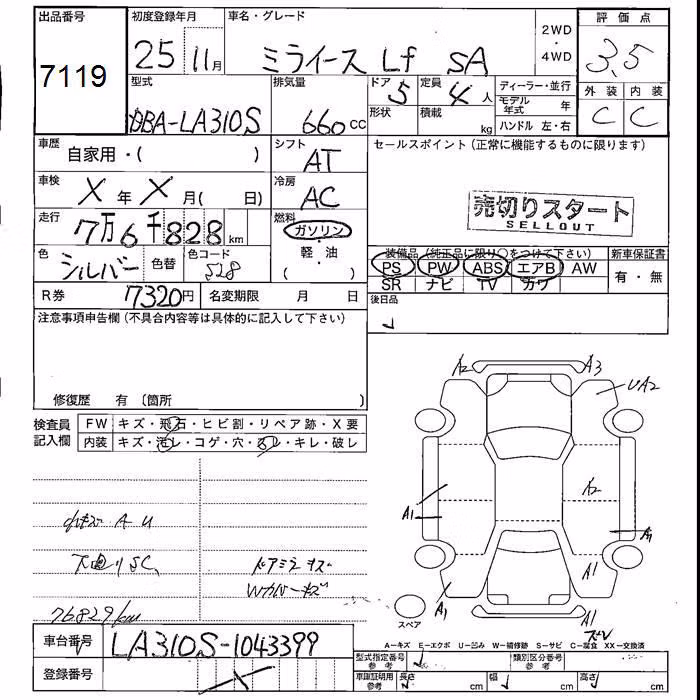 出品番号 初度登録年月 車名・グレード 2WD ・ 4WD 評価点
7119 25 11月 ミライース Lf SA 3.5
型式 排気量 ドア 定員 ディーラー・並行 外装 内装
DBA-LA310S 660cc 5 4人 モデル年式 年 C C
形状 積載 kg ハンドル 左・右
車歴 自家用・( ) シフト AT セールスポイント(正常に機能するものに限ります)
車検 X年X月( 日) 冷房 AC
売切りスタート
SELLOUT
走行 7万6千828km 燃料 ガソリン
軽・油
( )
色 シルバー 色替 色コード S28
装備品(純正品に限り○をつけて下さい) 新車保証書
PS PW ABS エアB AW 有・無
SR ナビ TV カワ
R券 7320円 名変期限 月 日 後日品
注意事項申告欄(不具合内容等は具体的に記入して下さい)
修復歴 有(箇所 )
検査員記入欄 FW キズ・飛石・ヒビ割・リペア跡・X要
内装 キズ・汚レ・コゲ・穴・スレ・キレ・破レ
A2 A3
UA2
A2
A1 A1
A1
A1 A1
A U
下廻りSC
ドアミラーキズ
Wカバーキズ
76829km
スペア
A-キズ E-エクボ U-凹み W-補修跡 S-サビ C-腐食 XX-交換済
車台番号 LA310S-1043399
型式指定番号 参考 類別区分番号 参考
登録番号 X
車庫証明用 参考 長さ cm 幅 cm 高さ cm